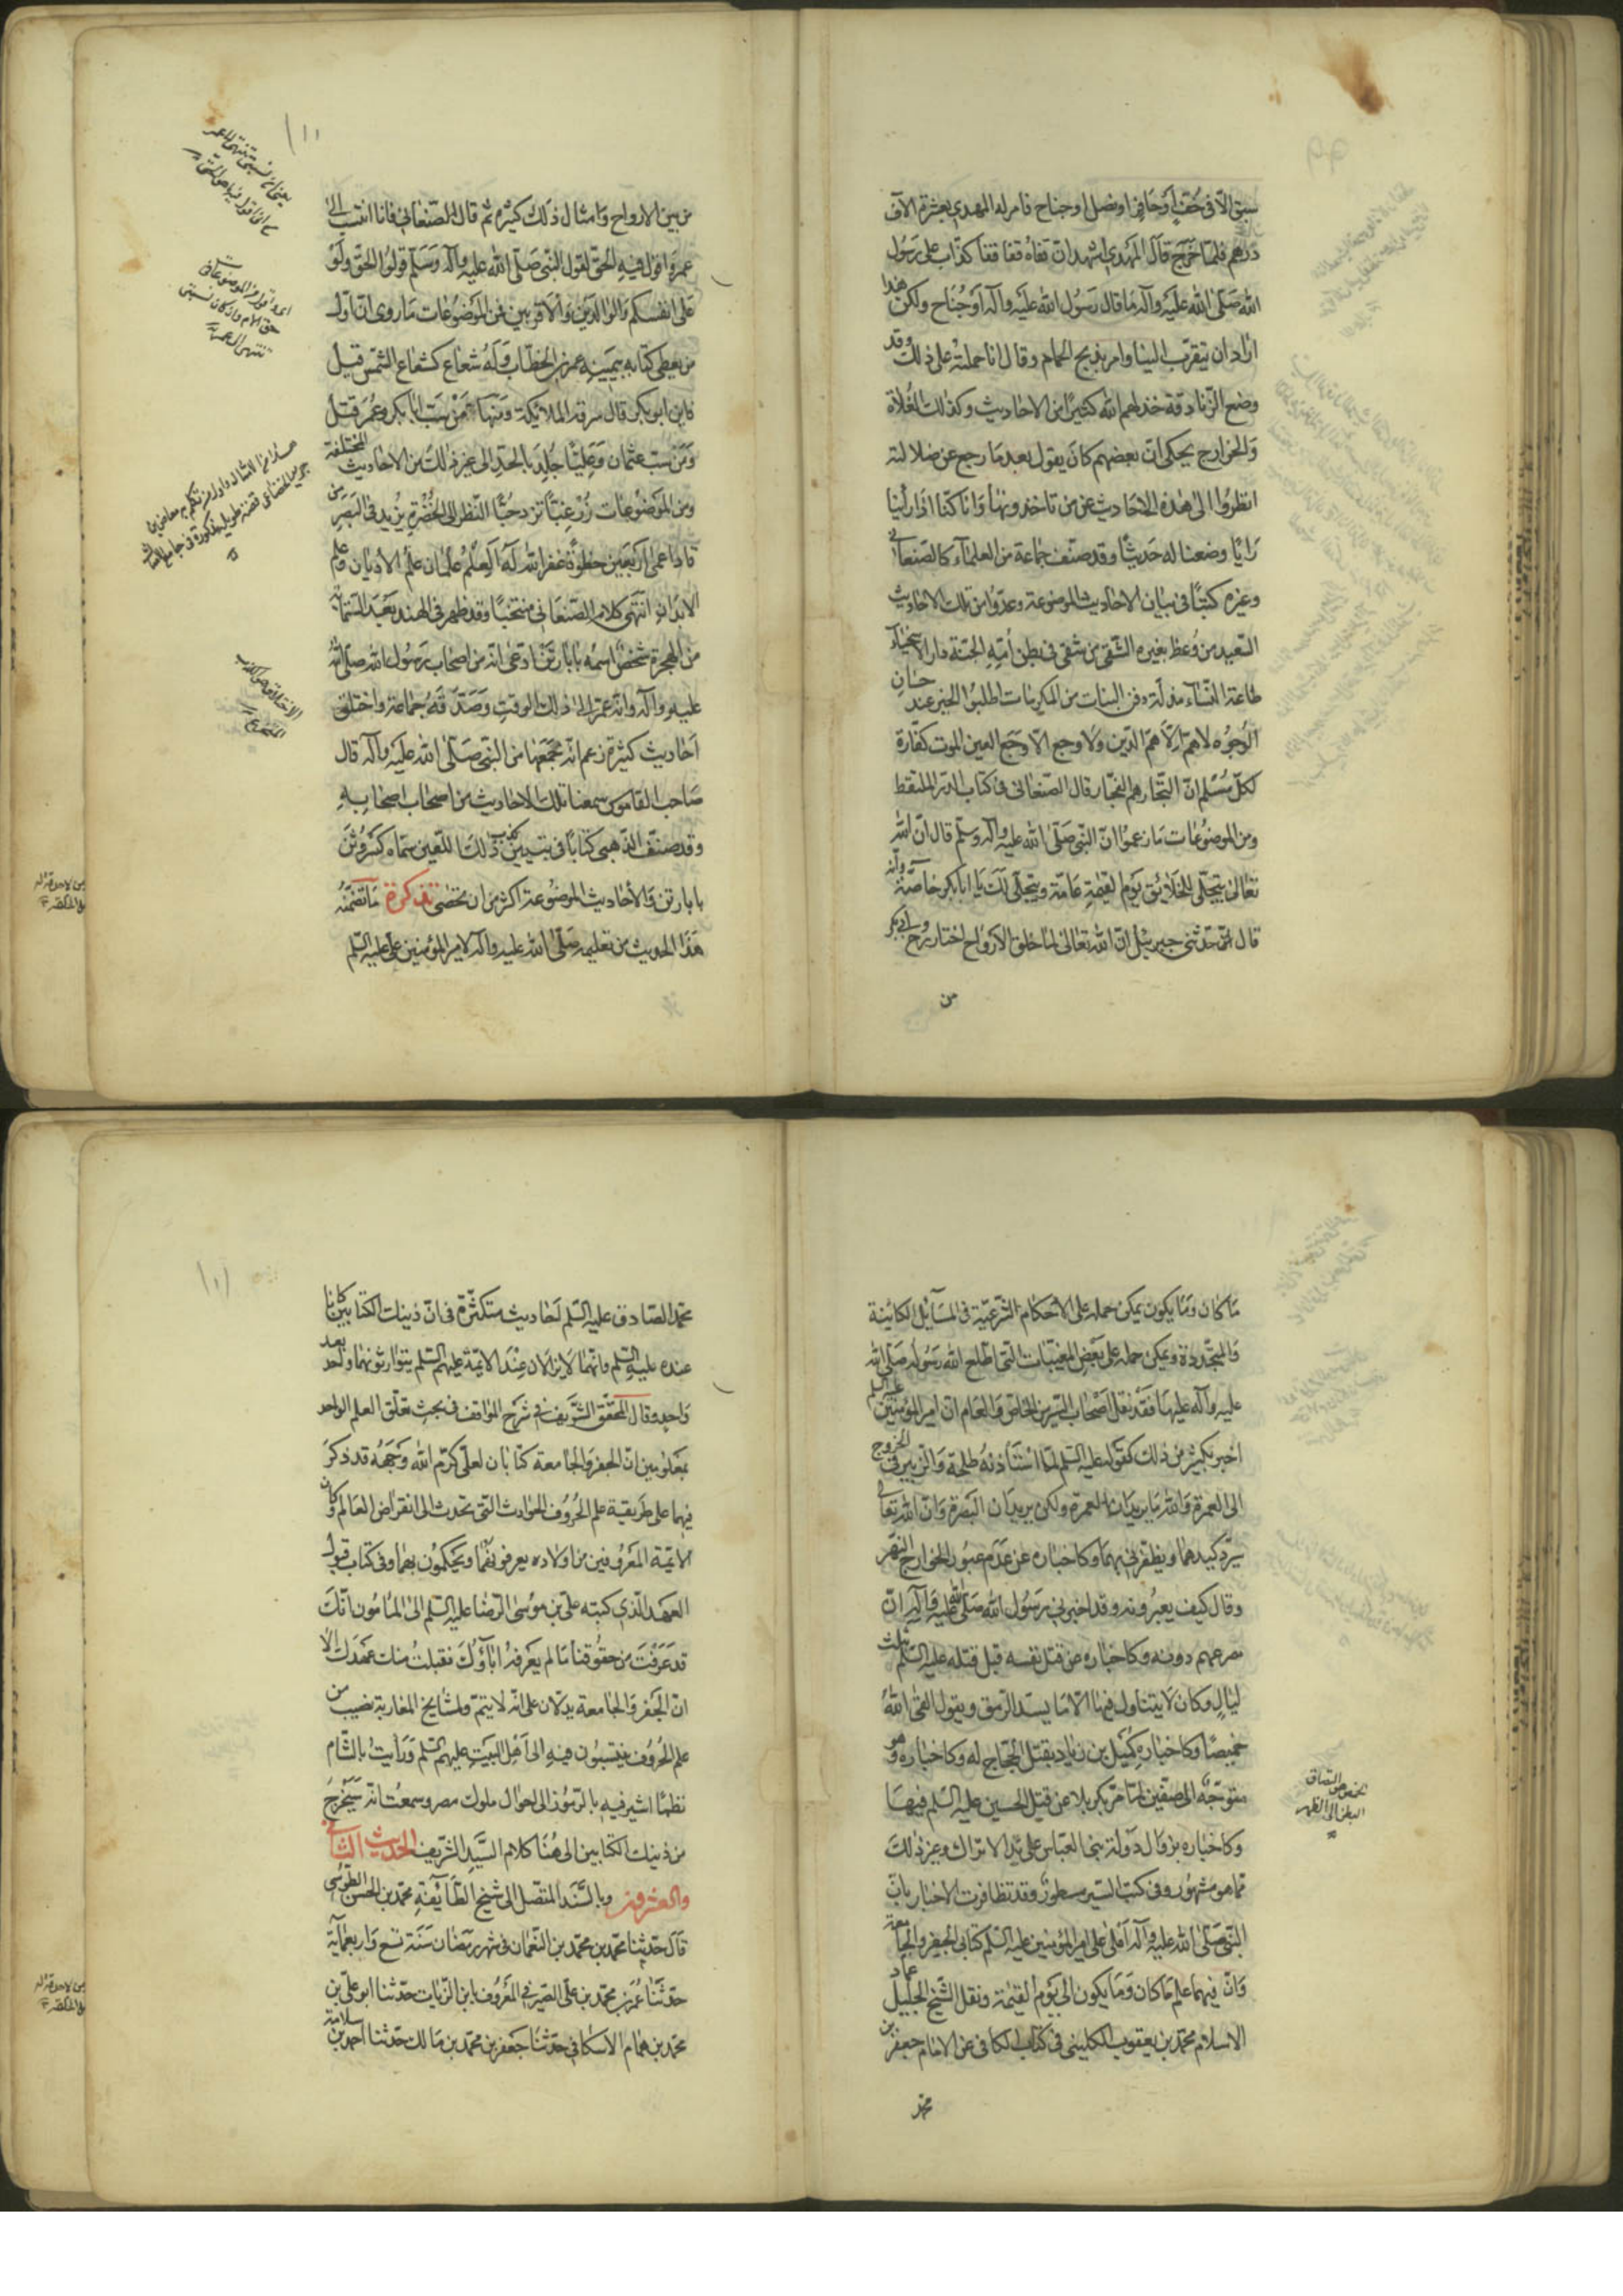 سبق الا فی خف او حافر او نصل او جناح فامر له المهدی بعشرة الاف
درهم فلما خرج قال المهدی اشهد ان قفاه قفا کذاب علی رسول
الله صلی الله علیه وآله ما قال رسول الله علیه وآله او جناح ولکن هذا
اراد ان یتقرب الینا وامر بذبح الحمام وقال انا حملته علی ذلک وقد
وضع الزنادقة خذلهم الله کثیرا من الاحادیث وکذلک الغلاة
والخوارج یحکی ان بعضهم کان یقول بعد ما رجع عن ضلالته
انظروا الی هذه الاحادیث عن من تاخذونها وانا کنا اذا راینا
رایا وضعنا له حدیثا وقد صنف جماعة من العلماء کالصنعانی
وغیره کتبا فی بیان الاحادیث الموضوعة وعدوا من تلک الاحادیث
السعید من وعظ بغیره الشقی من شقی فی بطن امه الجنة دار الاسخیاء
طاعة النساء مذلة دفن البنات من المکرمات اطلبوا الخیر عند حسان
الوجوه لا هم الا هم الدین ولا وجع الا وجع العین الموت کفارة
لکل مسلم ان التجار هم الفجار قال الصنعانی فی کتاب الدر الملتقط
ومن الموضوعات ما زعموا ان النبی صلی الله علیه وآله وسلم قال ان الله
تعالی یتجلی للخلائق یوم القیمة عامة ویتجلی لک یا ابا بکر خاصة وانه
قال حدثنی جبرئیل ان الله تعالی لما خلق الارواح اختار روح ابی بکر
من
من بین الارواح وامثال ذلک کثیرة ثم قال الصنعانی فانا انتسب الی
عمر واقول فیه الحق لقول النبی صلی الله علیه وآله وسلم قولوا الحق ولو
علی انفسکم والوالدین والاقربین فمن الموضوعات ما روی ان اول
من یعطی کتابه بیمینه عمر بن الخطاب وله شعاع کشعاع الشمس قیل
فاین ابو بکر قال سرقته الملائکة ومنها من سب ابا بکر وعمر قتل
ومن سب عثمان وعلیا جلد الحد الی غیر ذلک من الاحادیث المختلقة
ومن الموضوعات زر غبا تزدد حبا النظر الی الخضرة یزید فی البصر من
قاد اعمی اربعین خطوة غفر الله له العلم علمان علم الادیان وعلم
الابدان انتهی کلام الصنعانی منتخبا وقد ظهر فی الهند بعد الستمائة
من الهجرة شخص اسمه بابا رتن ادعی انه من اصحاب رسول الله صلی الله
علیه وآله وانه عمر الی ذلک الوقت وصدقه جماعة واختلق
احادیث کثیرة زعم انه سمعها من النبی صلی الله علیه وآله قال
صاحب القاموس سمعنا تلک الاحادیث من اصحاب اصحابه
وقد صنف الذهبی کتابا فی تبیین کذب ذلک اللعین سماه کسر وثن
بابا رتن والاحادیث الموضوعة اکثر من ان تحصی تذکرة ما تضمنه
هذا الحدیث من تعلیمه صلی الله علیه وآله لامیر المؤمنین علی علیه السلم
ما کان وما یکون یمکن حمله علی الاحکام الشرعیة فی المسائل الکائنة
والمتجددة ویمکن حمله علی بعض المغیبات التی اطلع الله رسوله صلی الله
علیه وآله علیها فقد نقل اصحاب السیر من الخاص والعام ان امیر المؤمنین علیه السلم
اخبر بکثیر من ذلک کقوله علیه السلم لما استاذنه طلحة والزبیر فی الخروج
الی العمرة والله ما یریدان العمرة ولکن یریدان البصرة وان الله تعالی
یرد کیدهما ویظفرنی بهما وکاخباره عن عدم عبور الخوارج النهر
وقال کیف یعبرونه وقد اخبرنی رسول الله صلی الله علیه وآله ان
مصرعهم دونه وکاخباره عن قتل نفسه قبل قتله علیه السلم بثلث
لیال وکان لا یتناول فیها الا ما یسد الرمق ویقول القی الله
خمیصا وکاخباره کمیل بن زیاد بقتل الحجاج له وکاخباره وهو
متوجه الی صفین لما مر بکربلا عن قتل الحسین علیه السلم فیها
وکاخباره بزوال دولة بنی العباس علی ید الاتراک وغیر ذلک
مما هو مشهور وفی کتب السیر مسطور وقد تظافرت الاخبار بان
النبی صلی الله علیه وآله املی علی امیر المؤمنین علیه السلم کتابی الجفر والجامعة
وان فیهما علم ما کان وما یکون الی یوم القیمة ونقل الشیخ الجلیل عماد
الاسلام محمد بن یعقوب الکلینی فی کتاب الکافی عن الامام جعفر بن
محمد
محمد الصادق علیه السلم احادیث متکثرة فی ان ذینک الکتابین کانا
عنده علیه السلم وانهما لا یزالان عند الائمة علیهم السلم یتوارثونهما واحد بعد
واحد وقال المحقق الشریف فی شرح المواقف فی بحث تعلق العلم الواحد
بمعلومین ان الجفر والجامعة کتابان لعلی کرم الله وجهه قد ذکر
فیهما علی طریقة علم الحروف الحوادث التی تحدث الی انقراض العالم وکان
الائمة المعروفین من اولاده یعرفونهما ویحکمون بهما وفی کتاب قبول
العهد الذی کتبه علی بن موسی الرضا علیه السلم الی المامون انک
قد عرفت من حقوقنا ما لم یعرفه اباؤک فقبلت منک عهدک الا
ان الجفر والجامعة یدلان علی انه لا یتم ولمشایخ المغاربة نصیب من
علم الحروف ینتسبون فیه الی اهل البیت علیهم السلم ورایت بالشام
نظما اشیر فیه بالرموز الی احوال ملوک مصر وسمعت انه مستخرج
من ذینک الکتابین الی هنا کلام السید الشریف الحدیث الثانی
والعشرون وبالسند المتصل الی شیخ الطائفة محمد بن الحسن الطوسی
قال حدثنا محمد بن محمد بن النعمان فی شهر رمضان سنة تسع واربعمایة
حدثنا عمر بن محمد بن علی الصیرفی المعروف بابن الزیات حدثنا ابو علی بن
محمد بن همام الاسکافی حدثنا جعفر بن محمد بن مالک حدثنا احمد بن سلامة